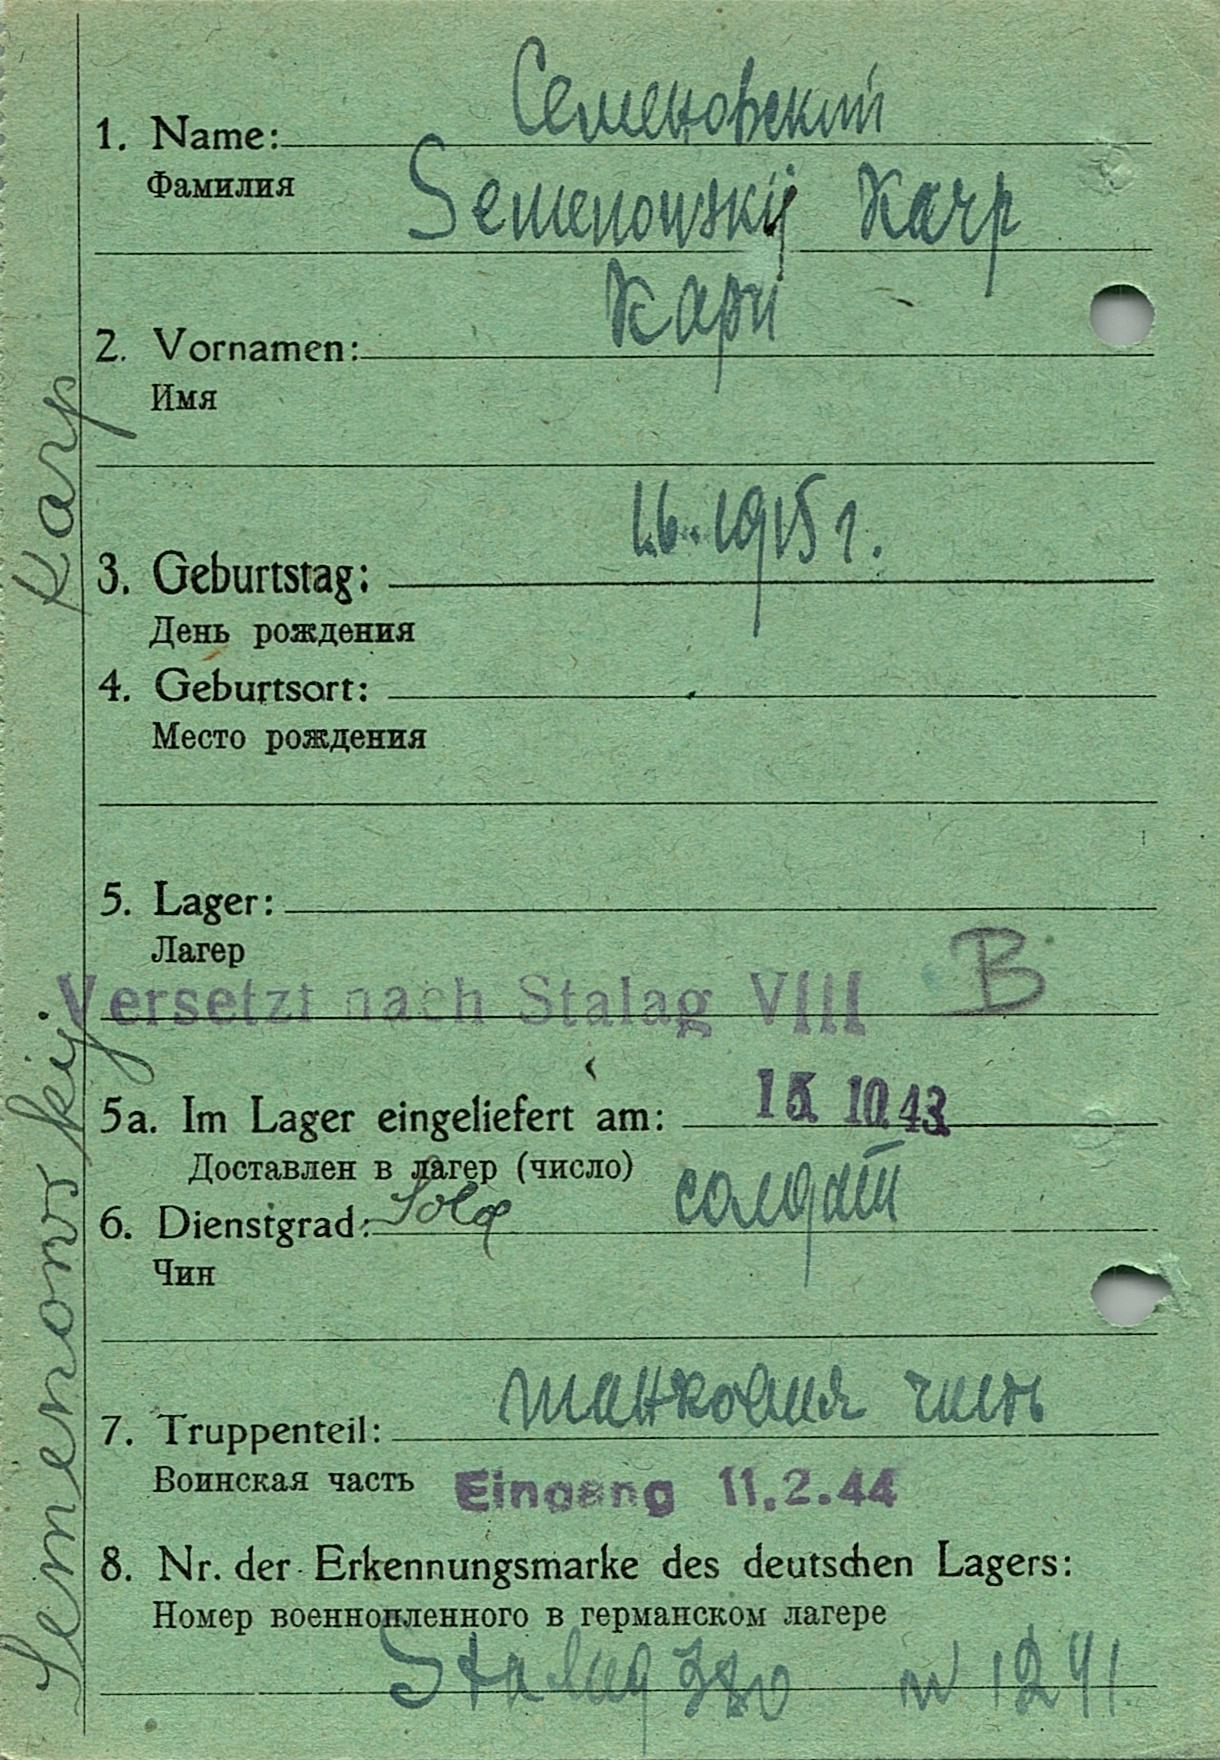 Семеновский
1. Name:
Фамилия
Semenowskij Karp
Карп
2. Vornamen:
Имя
1.6. 1915 г.
3. Geburtstag:
День рождения
4. Geburtsort:
Место рождения
5. Lager:
Лагер
Versetzt nach Stalag VIII B
5a. Im Lager eingeliefert am: 15. 10. 43
Доставлен в лагер (число)
6. Dienstgrad: Sold солдат
Чин
танковая часть
7. Truppenteil:
Воинская часть
Eingang 11.2.44
8. Nr. der Erkennungsmarke des deutschen Lagers:
Номер военнопленного в германском лагере
Stalag 380 N 1241
Semenowskij Karp